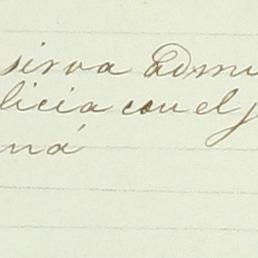 sirva admi
licia con el j
ná